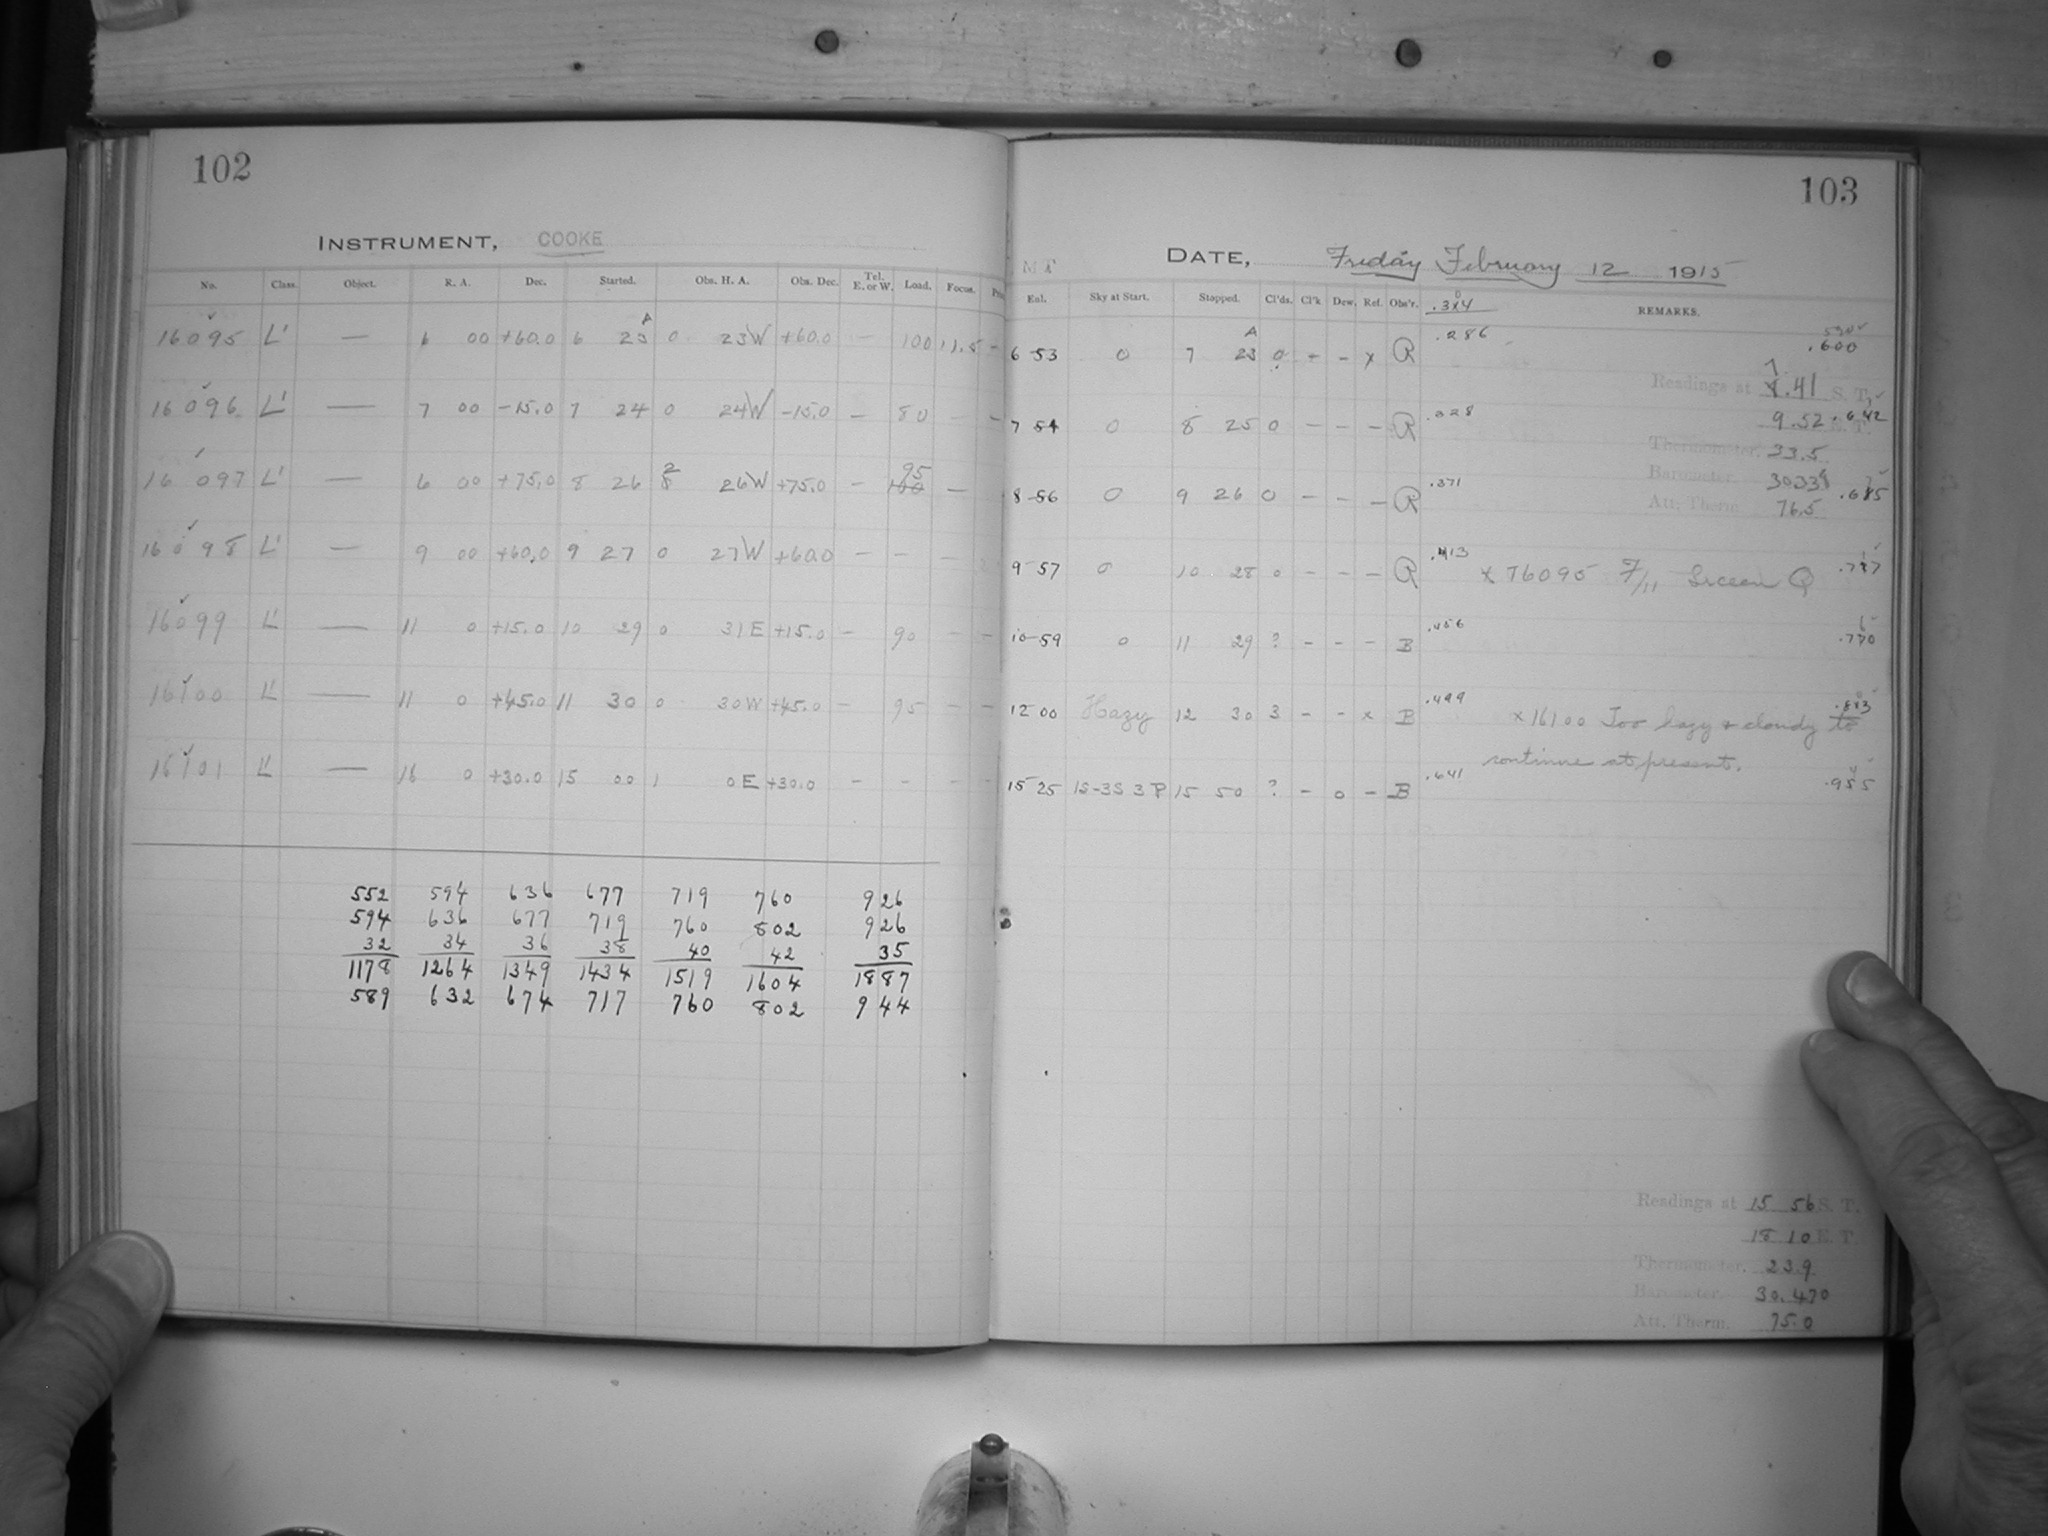 102
INSTRUMENT, COOKE
No. Class. Object. R. A. Dec. Started. Obs. H. A. Obs. Dec. Tel. E. or W. Load. Focus.
16095 L' — 6 00 +60.0 6 23 A 0 23W +60.0 — 100 11.5 —
16096 L' — 7 00 −15.0 7 24 0 24W −15.0 — 80 — —
16097 L' — 6 00 +75.0 8 26 2 26W +75.0 — 95 100 —
16098 L' — 9 00 +60.0 9 27 0 27W +60.0 — — —
16099 L' — 11 0 +15.0 10 29 0 31E +15.0 — 90 — —
16100 L' — 11 0 +45.0 11 30 0 30W +45.0 — 95 — —
16101 L' — 16 0 +30.0 15 00 1 0E +30.0 — — — —
552 594 636 677 719 760 926
594 636 677 719 760 802 926
32 34 36 38 40 42 35
1178 1264 1349 1434 1519 1604 1887
589 632 674 717 760 802 944
103
MT DATE, Friday February 12 1915
Eol. Sky at Start. Stopped. Cl'ds. Cl'k Dew. Ref. Obs'r. REMARKS.
6 53 0 7 23 A 0 + − x R .286 .600
Readings at 7.41 S. T.
7 54 0 8 25 0 − − − R .328 9.52 E. T. .642
Thermometer. 33.5
Barometer.
8 56 0 9 26 0 − − − R .371
Att. Therm. 76.5
9 57 0 10 28 0 − − − R .413 x 76095 F/11 Screen Q
10 59 0 11 29 ? − − − B .456
12 00 Hazy 12 30 3 − − x B .499 x 16100 Too hazy & cloudy to
continue at present.
15 25 1S-3S 3P 15 50 ? − 0 − B .641
Readings at 15 56 S. T.
18 10 E. T.
Thermometer. 23.9
Barometer. 30.470
Att. Therm. 75.0